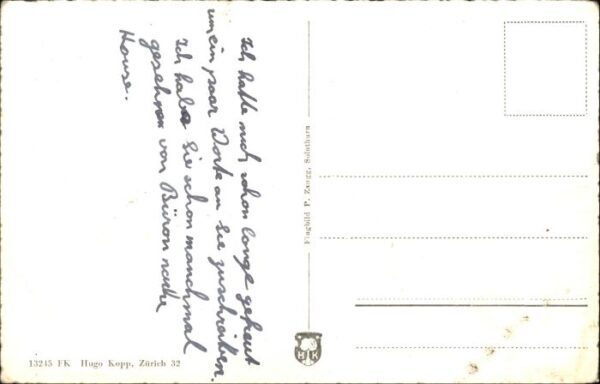 Ich hatte mich schon lange gefreut
um ein paar Worte an Sie zuschreiben.
Ich habe Sie schon manchmal
gesehren von Büron nache
House.
Flugbild P. Zaugg, Solothurn
H K
13245 FK Hugo Kopp, Zürich 32